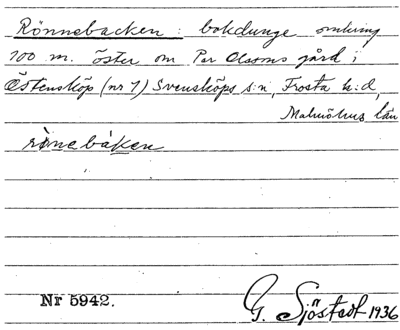 Rönnebacken : bokdunge omkring
100 m. öster om Per Olssons gård i
Östensköp (nr 7) Svensköps s:n, Frosta h:d,
Malmöhus län
rönebáken
Nr 5942.
G. Sjöstedt 1936